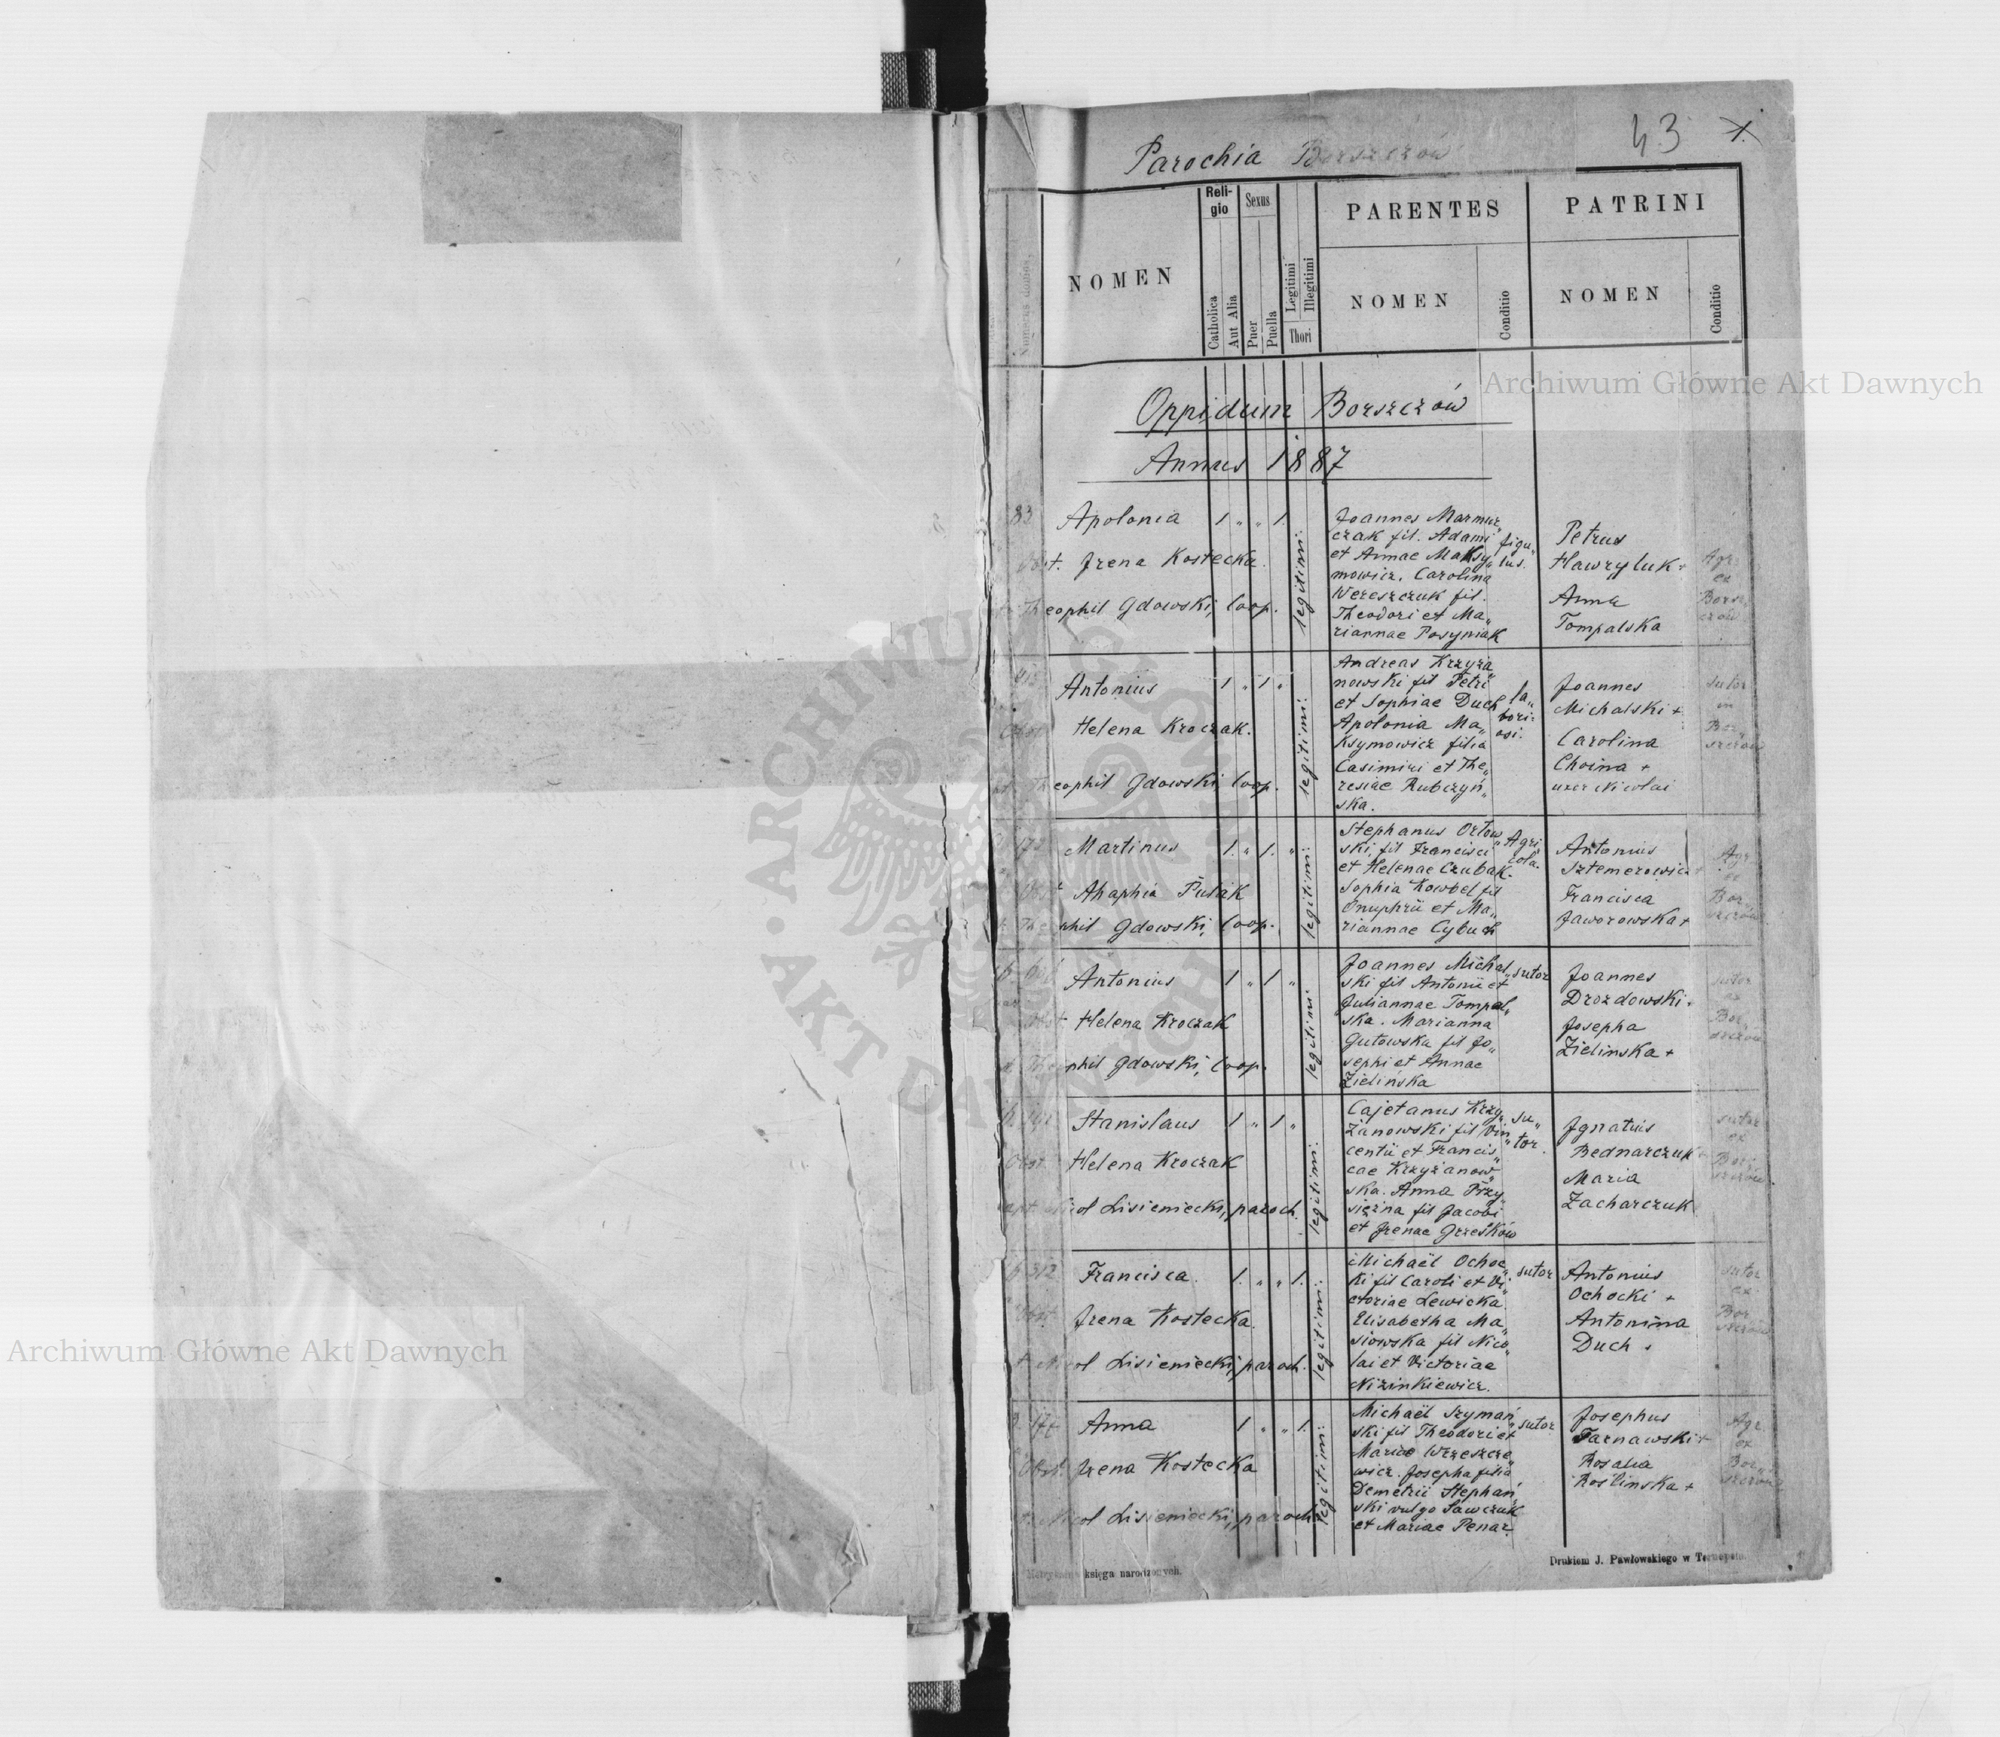 43
Parochia Borszczów
Numerus domus
NOMEN
Religio
Catholica
Aut Alia
Sexus
Puer
Puella
Legitimi
Illegitimi
Thori
PARENTES
NOMEN
Conditio
PATRINI
NOMEN
Conditio
Oppidum Borszczów
Annus 1887
83 Apolonia 1 " " 1.
Obst. Irena Kostecka.
Theophil Gdowski, Coop.
legitimi.
Joannes Marmur„
czak fil. Adami
et Annae Maksy„
mowicz. Carolina
Wereszczuk fil.
Theodori et Ma„
riannae Posyniak
figu„
lus.
Petrus
Hawryluk +
Anna
Tompalska
Agr.
ex
Borsz„
czów
Antonius 1 " 1 "
Obst. Helena Kroczak.
Theophil Gdowski, Coop.
legitimi.
Andreas Krzyża„
nowski fil Petri
et Sophiae Duch
Apolonia Ma„
ksymowicz filia
Casimiri et The„
resiae Rubczyń„
ska.
la„
bori„
osi.
Joannes
Michalski +
Carolina
Choina +
uxor Nicolai
sutor
in
Bor„
szczów
172 Martinus 1. " 1. "
Obst Ahaphia Pusak
Theophil Gdowski, Coop.
legitimi.
Stephanus Orłow„
ski, fil Francisci
et Helenae Czubak.
Sophia Kowbel fil
Onuphrii et Ma„
riannae Cybuch
Agri„
cola.
Antonius
Sztemerowicz +
Francisca
Jaworowska +
Agr
ex
Bor„
szczów
Antonius 1 " 1 "
Obst Helena Kroczak
Theophil Gdowski, Coop.
legitimi
Joannes Michal„
ski fil Antonii et
Juliannae Tompal„
ska. Marianna
Gutowska fil Jo„
sephi et Annae
Zielińska
sutor
Joannes
Drozdowski.
Josepha
Zielinska +
sutor
ex
Bor„
szczów
Stanislaus 1 " 1 "
Obst Helena Kroczak
Nicol Lisieniecki, paroch.
legitimi.
Cajetanus Krzy„
żanowski fil Vin„
centii et Francis„
cae Krzyżanow„
ska. Anna Przy„
siężna fil Jacobi
et Irenae Grześków
su„
tor.
Ignatius
Bednarczuk
Maria
Zacharczuk
sutor
ex
Bor„
szczów
312 Francisca. 1. " " 1.
Obst. Irena Kostecka.
Nicol Lisieniecki, paroch.
legitimi.
Michaël Ochoc„
ki fil Caroli et Vi„
ctoriae Lewicka.
Elisabetha Ma„
siowska fil Nico„
lai et Victoriae
Nizinkiewicz.
sutor
Antonius
Ochocki +
Antonina
Duch.
sutor
ex
Bor„
szczów
174 Anna 1 " " 1.
Obst. Irena Kostecka
Nicol Lisieniecki, paroch.
legitimi.
Michaël Szymań„
ski fil Theodori et
Mariae Wereszcze„
wicz. Josepha filia
Demetrii Stephań„
ski vulgo Sawczuk
et Mariae Penar.
sutor
Josephus
Tarnawski +
Rosalia
Roślinska +
Agr
ex
Bor„
szczów
księga narodzonych.
Drukiem J. Pawłowskiego w Tarnopolu.
Archiwum Główne Akt Dawnych
Archiwum Główne Akt Dawnych
ARCHIWUM GŁÓWNE
AKT DAWNYCH